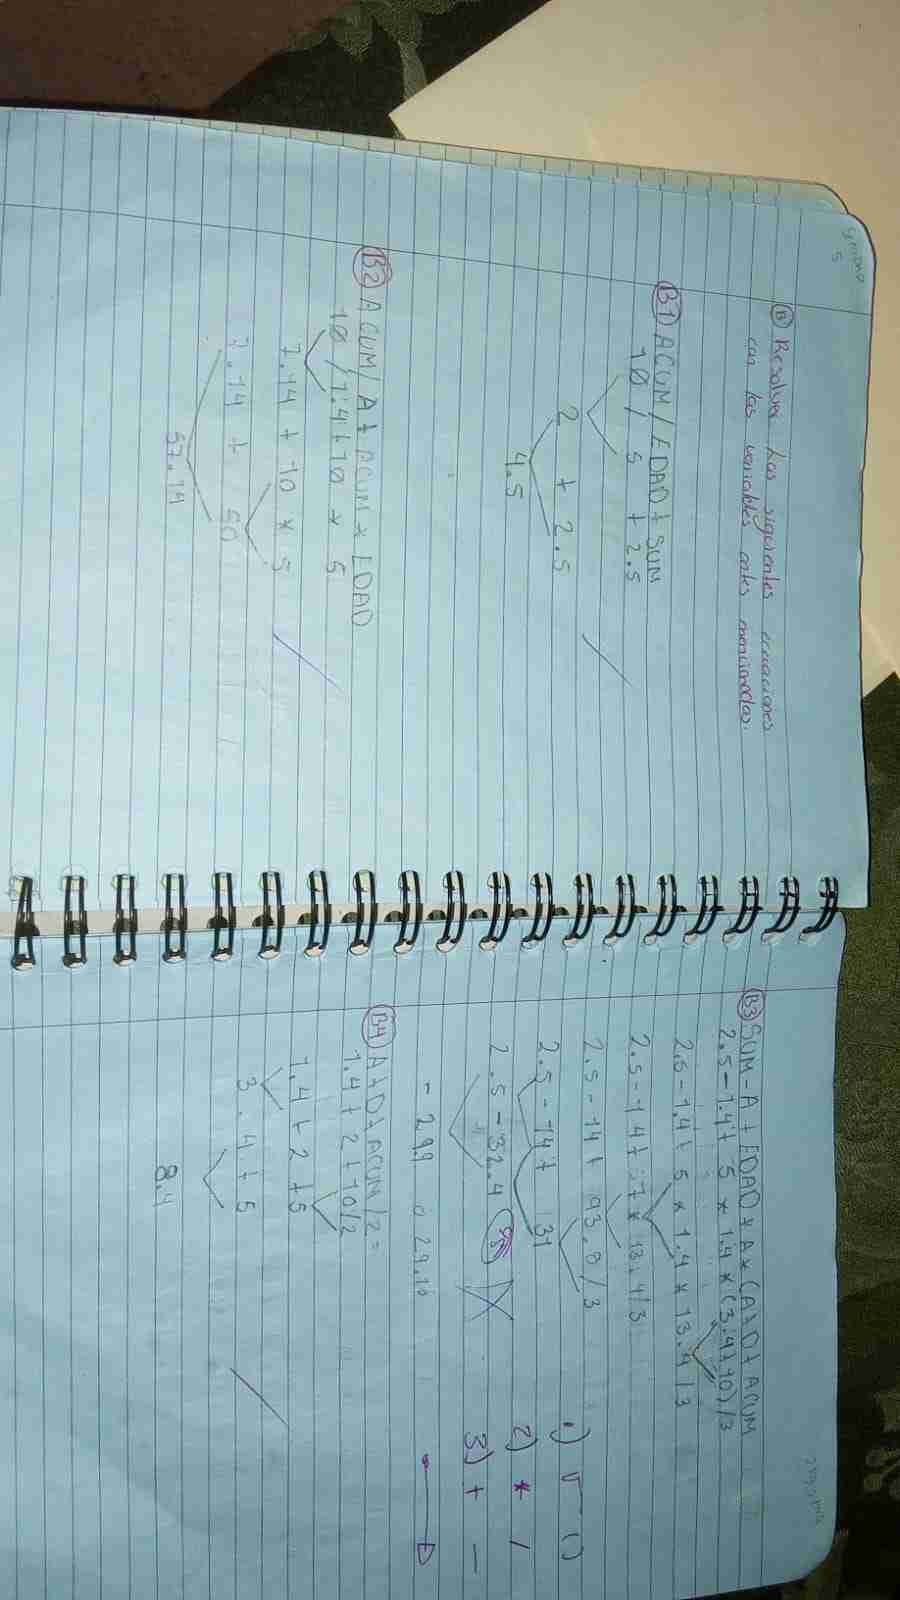 B Resolver las siguientes ecuaciones
con las variables antes mencionadas.
B1) ACUM/EDAD+SUM
10 / 5 + 2.5
2 + 2.5
4.5
B2) ACUM/A+ACUM*EDAD
10/1.4+10*5
7.14 + 10 * 5
7.14 + 50
57.14
B3) SUM-A+EDAD*A*(A+D+ACUM
2.5-1.4+5*1.4*(3.4+10)/3
2.5-1.4+5*1.4*13.4/3
2.5-14+7*13.4/3
2.5-14+93.8/3
2.5-14+31
2.5-32.4
-29.9
1) √ ()
2) * /
3) + -
B4) A+D+ACUM/2=
1.4+2+10/2
1.4+2+5
3.4+5
8.4